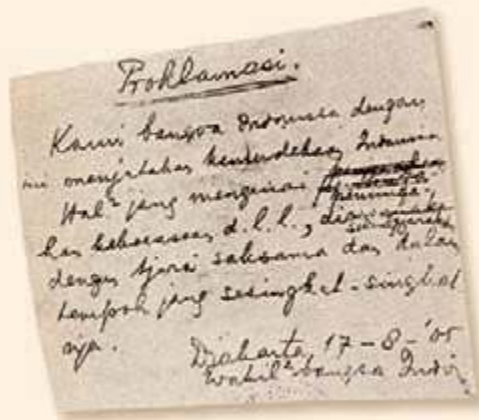 Proklamasi.
Kami bangsa Indonesia dengan
ini menjatakan kemerdekaan Indonesia
Hal² jang mengenai
kan kekoeasaan d.l.l.,
dengan tjara saksama dan dalam
tempoh jang sesingkat-singkat
nja.
Djakarta, 17 - 8 - '05
Wakil² bangsa Indo